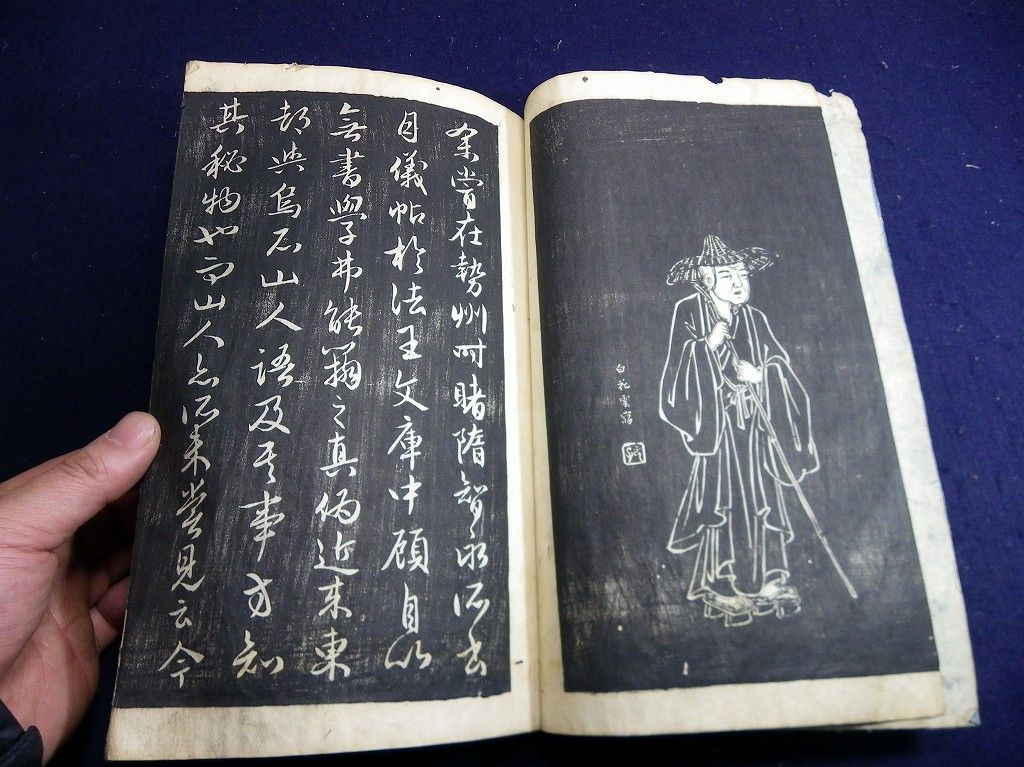 白花雲寫
余嘗在勢州時睹隋智永所書
月儀帖於法王文庫中顧自以
無書學弗能之真偽近来東
都與烏石山人語及其事方知
其秘物也而山人亦所未嘗見云今